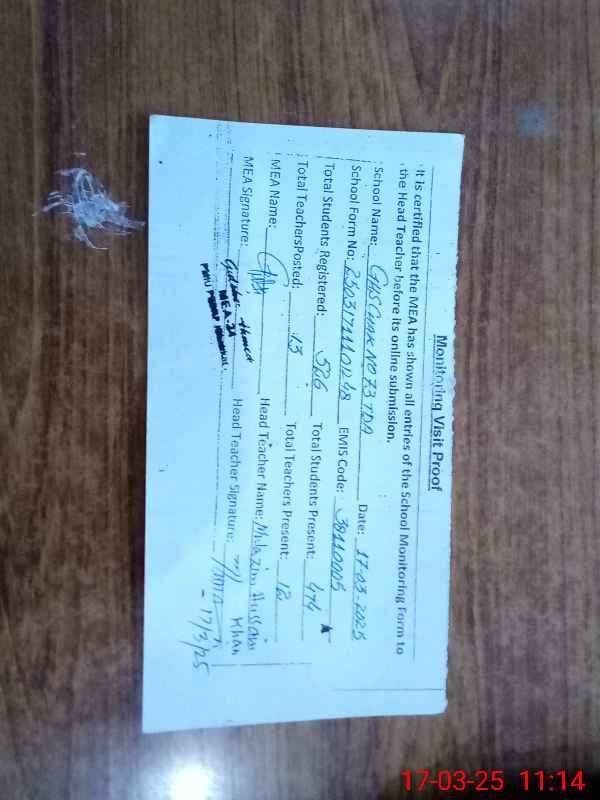 Monitoring Visit Proof
It is certified that the MEA has shown all entries of the School Monitoring Form to
the Head Teacher before its online submission.
School Name: GHS Chak No 73 TDA Date: 17-03-2025
School Form No: EMIS Code: 38110005
Total Students Registered: 526 Total Students Present: 474
Total TeachersPosted: 13 Total Teachers Present: 12
MEA Name: Head Teacher Name: Mulazim Hussain
MEA Signature: Head Teacher Signature: Khan
MEA-24
17/3/25
17-03-25 11:14